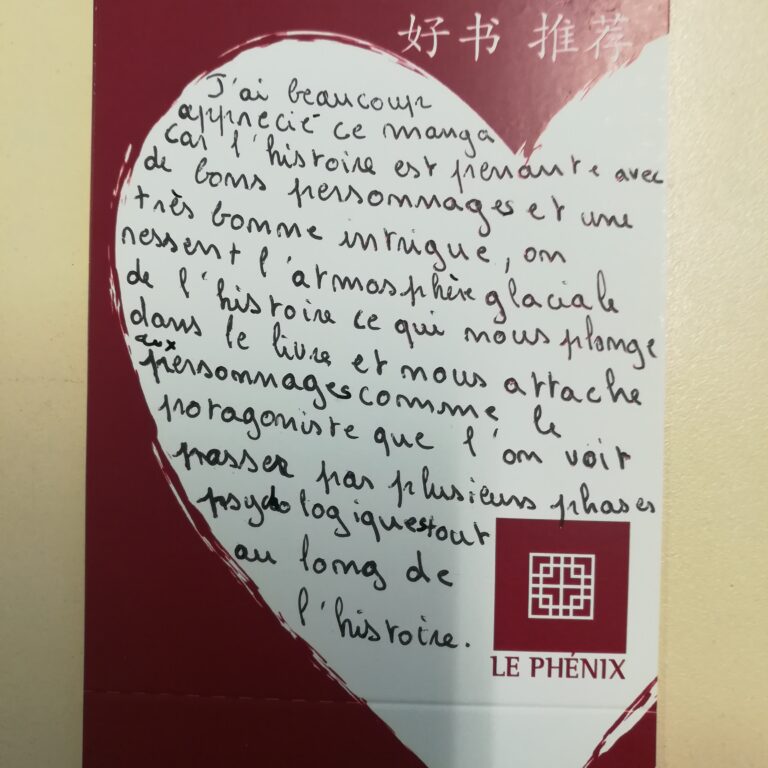 好书 推荐
J'ai beaucoup
apprecié ce manga
car l'histoire est prenante avec
de bons personnages et une
très bonne intrigue, on
ressent l'atmosphère glaciale
de l'histoire ce qui nous plonge
dans le livre et nous attache
aux
personnages comme le
protagoniste que l'on voit
passer par plusieurs phases
psychologiques tout
au long de
l'histoire.
LE PHÉNIX